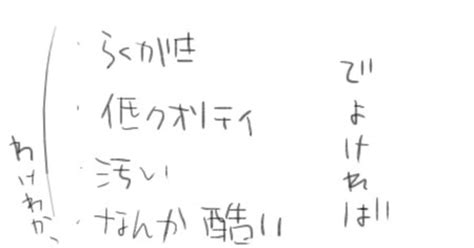 ・らくがき
・低クオリティ
・汚い
・なんか酷い
でよければ
わけわかう